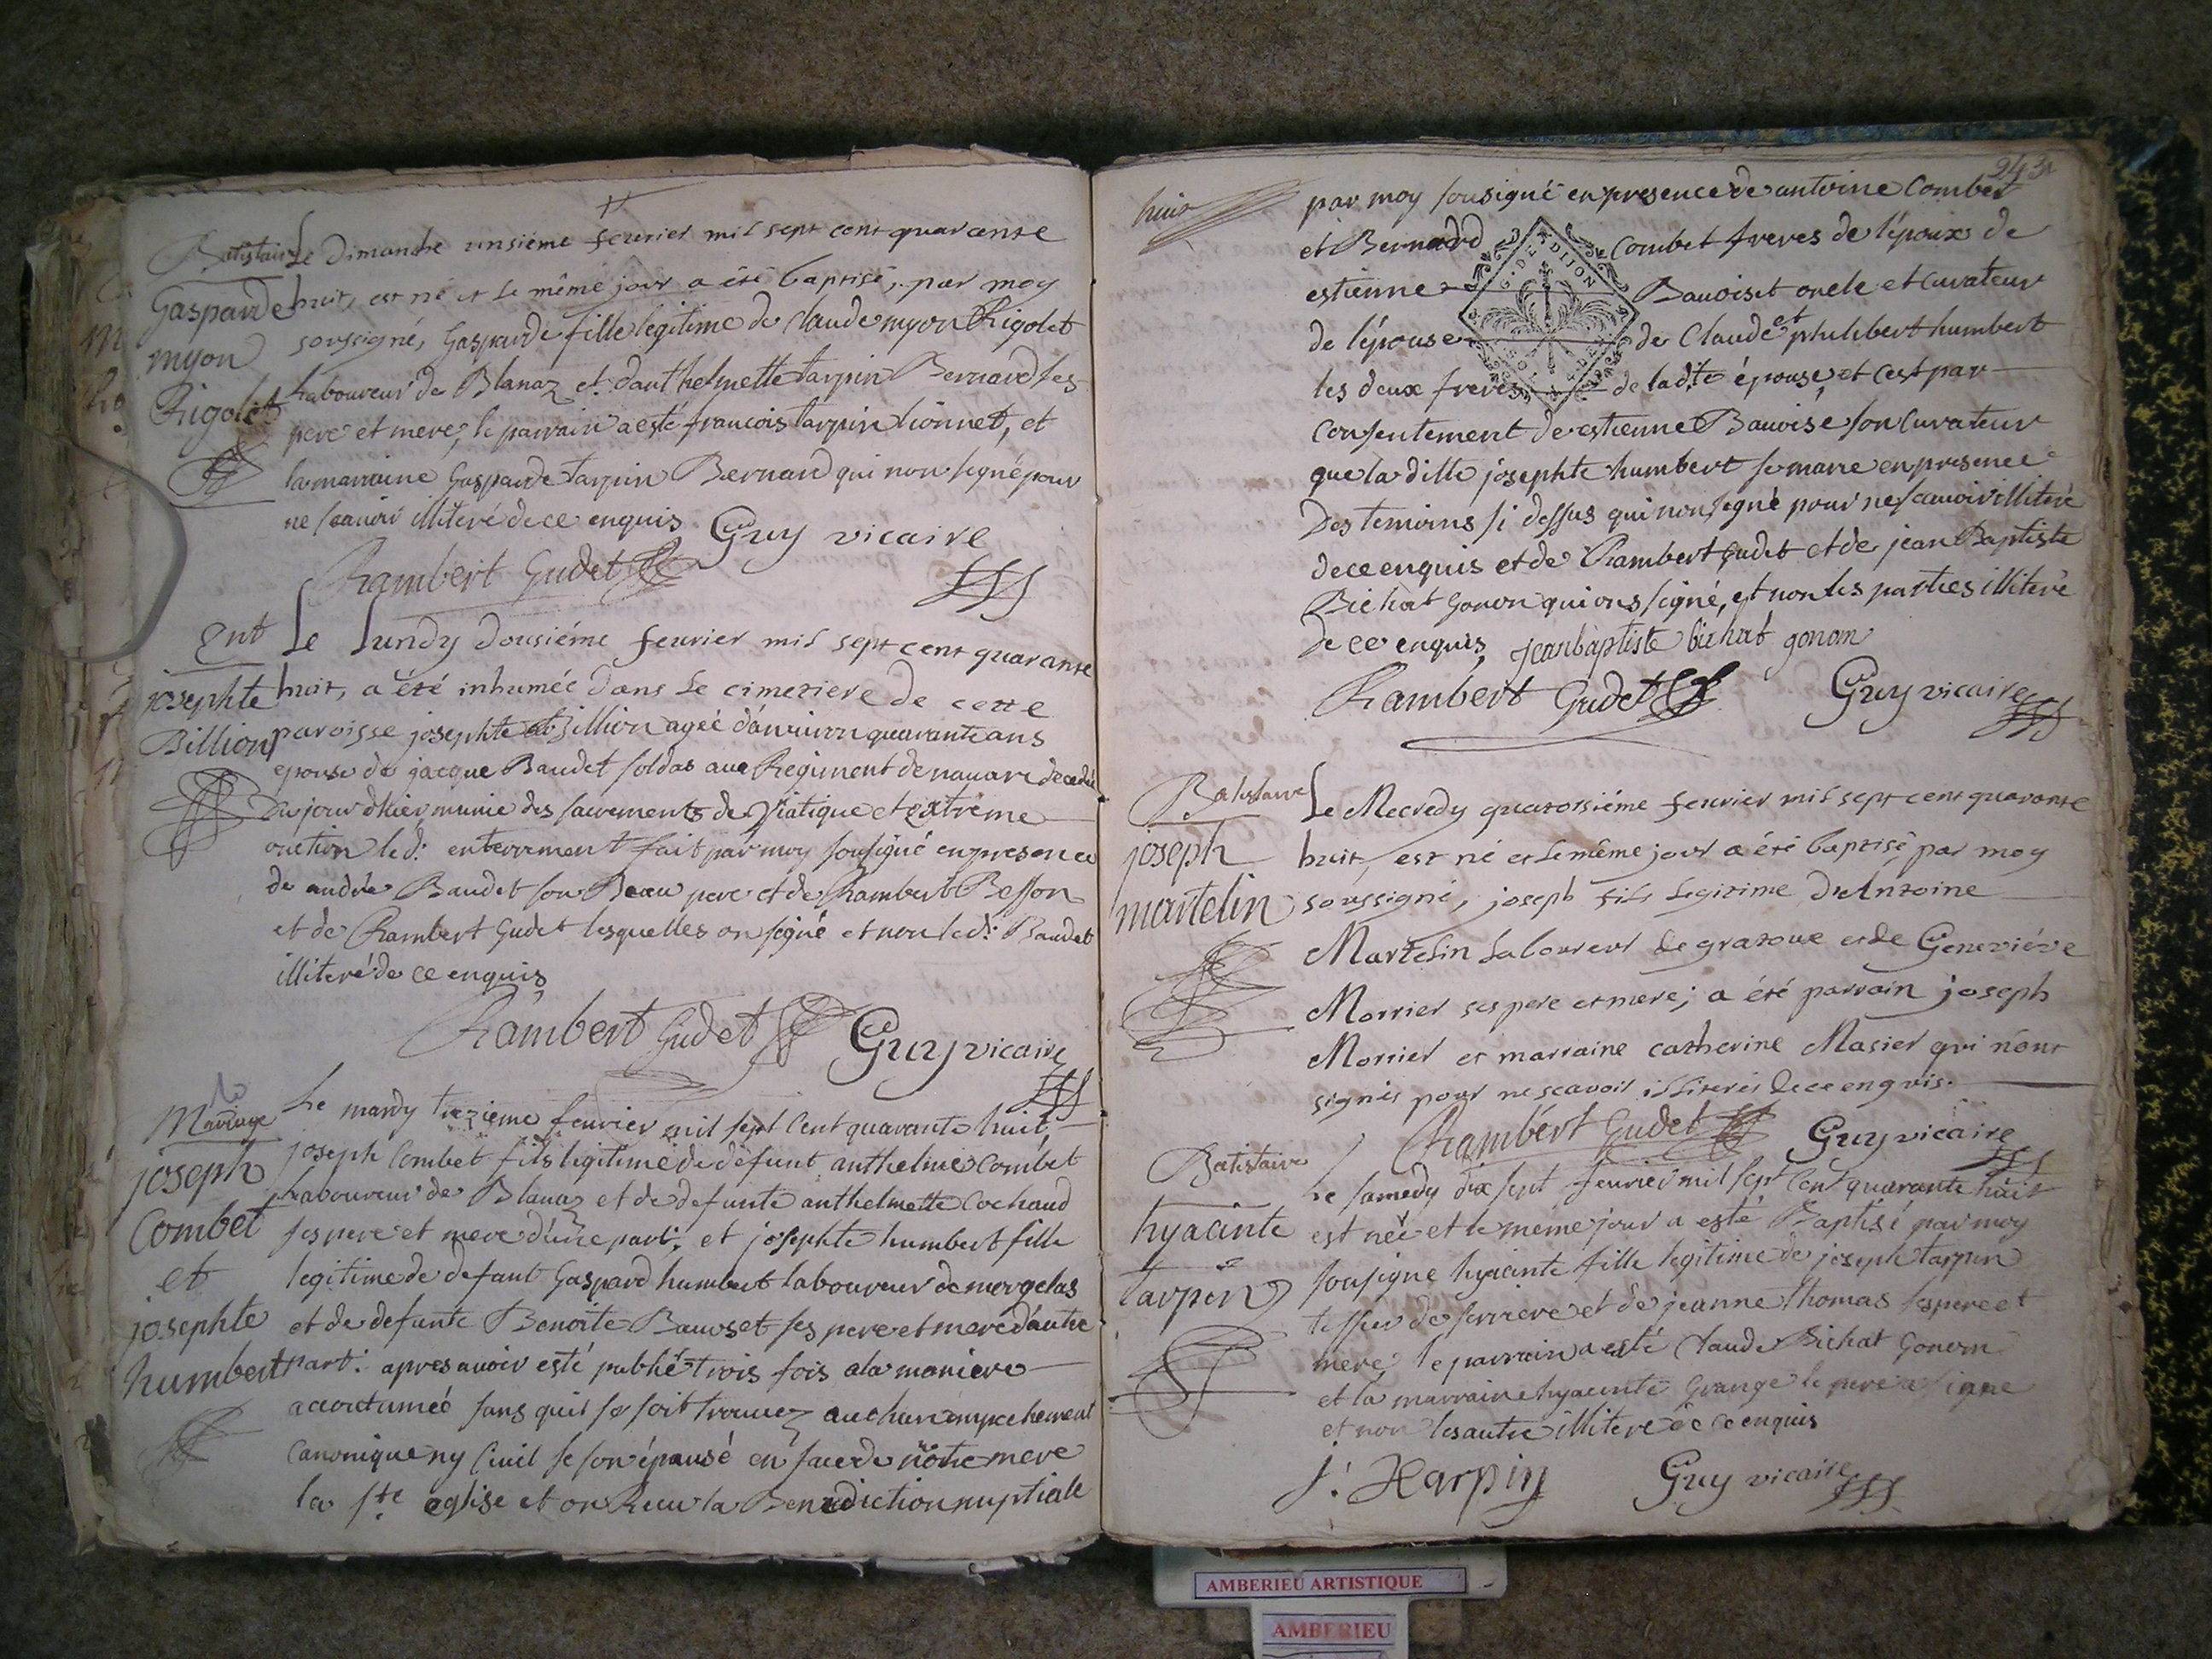 Batistaire Le Dimanche unsiéme feurier mil sept cent quarente
Gasparde huit, est né et le même jour a été baptisé, par moy
myon soussigné, Gasparde fille legitime de claude myon Rigolet
Rigolet Laboureur de Blanaz et d'anthelmette tarpin Bernard ses
pere et mere, le parrain a esté francois tarpin lionnet, et
la marraine Gasparde tarpin Bernard qui non signé pour
ne scauoir illiteré de ce enquis Guy vicaire
Rambert Gudet
Ent Le Lundy dousiéme feurier mil sept cent quarante
josephte huit, a été inhumée dans Le cimetiere de cette
Billion paroisse josephte billion ageé d'anuiron quarante ans
epouse de jacque Baudet soldas aue Regiment de nauare decedée
du jour d'hier munie des sacrements de Viatique et extrême
onction led: enterrement fait par moy sousigné en presence
de andré Baudet son Beau pere et de Rambert Besson
et de Rambert Gudet lesquelles on signé et non led: Baudet
illiteré de ce enquis
Rambert Gudet Guy vicaire
Mariage Le mardy trezieme feurier mil sept cent quarante huit,
joseph joseph Combet fils legitime de défunt anthelme Combet
Combet Laboureur de Blanaz et de defunte anthelmette Cochaud
et ses pere et mere d'une part, et josephte humbert fille
josephte legitime de defunt Gaspard humbert laboureur de morgelas
humbert et de defunte Benoite Bauoset ses pere et mere d'autre
part: apres auoir esté publié trois fois a la maniere
acoutumée sans quil se soit trouuez auchun empechement
Canonique ny Ciuil se son épousé en face de nôtre mere
la ste eglise et on Recu la Benediction nuptiale
243
huit par moy sousigné en presence de antoine Combet
et Bernard Combet freres de l'époux de
estienne Bauoiset oncle et Curateur
G. DE DIJON
de l'épouse de Claude et philibert humbert
les deux freres de ladite épouse, et cest par
Consentement de estienne Bauoise son Curateur
que la ditte josephte humbert se marie en presence
Des temoins si dessus qui non signé pour ne scauoir illiteré
de ce enquis et de Rambert Gudet et de jean Baptiste
Bichat Gonon qui ons signé, et non les parties illiteré
de ce enquis jean baptiste bichat gonon
Rambert Gudet Guy vicaire
Batistaire Le Mecredy quatorsiéme feurier mil sept cent quarante
joseph huit, est né et le même jour a été baptisé, par moy
martelin soussigné, joseph fils Legitime d'Antoine
Martelin Laboureur de gratoux et de Geneviéve
Morrier ses pere et mere; a été parrain joseph
Morrier et marraine catherine Masier qui n'ont
signés pour ne scavoir illiterés de ce enquis.
Rambert Gudet Guy vicaire
Batistaire Le samedy dix sept feurier mil sept Cent quarante huit
hyacinte est née et le même jour a esté Baptisé par moy
tarpin sousigne hyacinte fille legitime de joseph tarpin
tissier de serriere et de jeanne thomas ses pere et
mere le parrain a esté Claude Bichat Gonon
et la marraine hyacinte Grange le pere a signe
et non les autre illitere de ce enquis
J. Tarpin Guy vicaire
AMBERIEU ARTISTIQUE
AMBERIEU